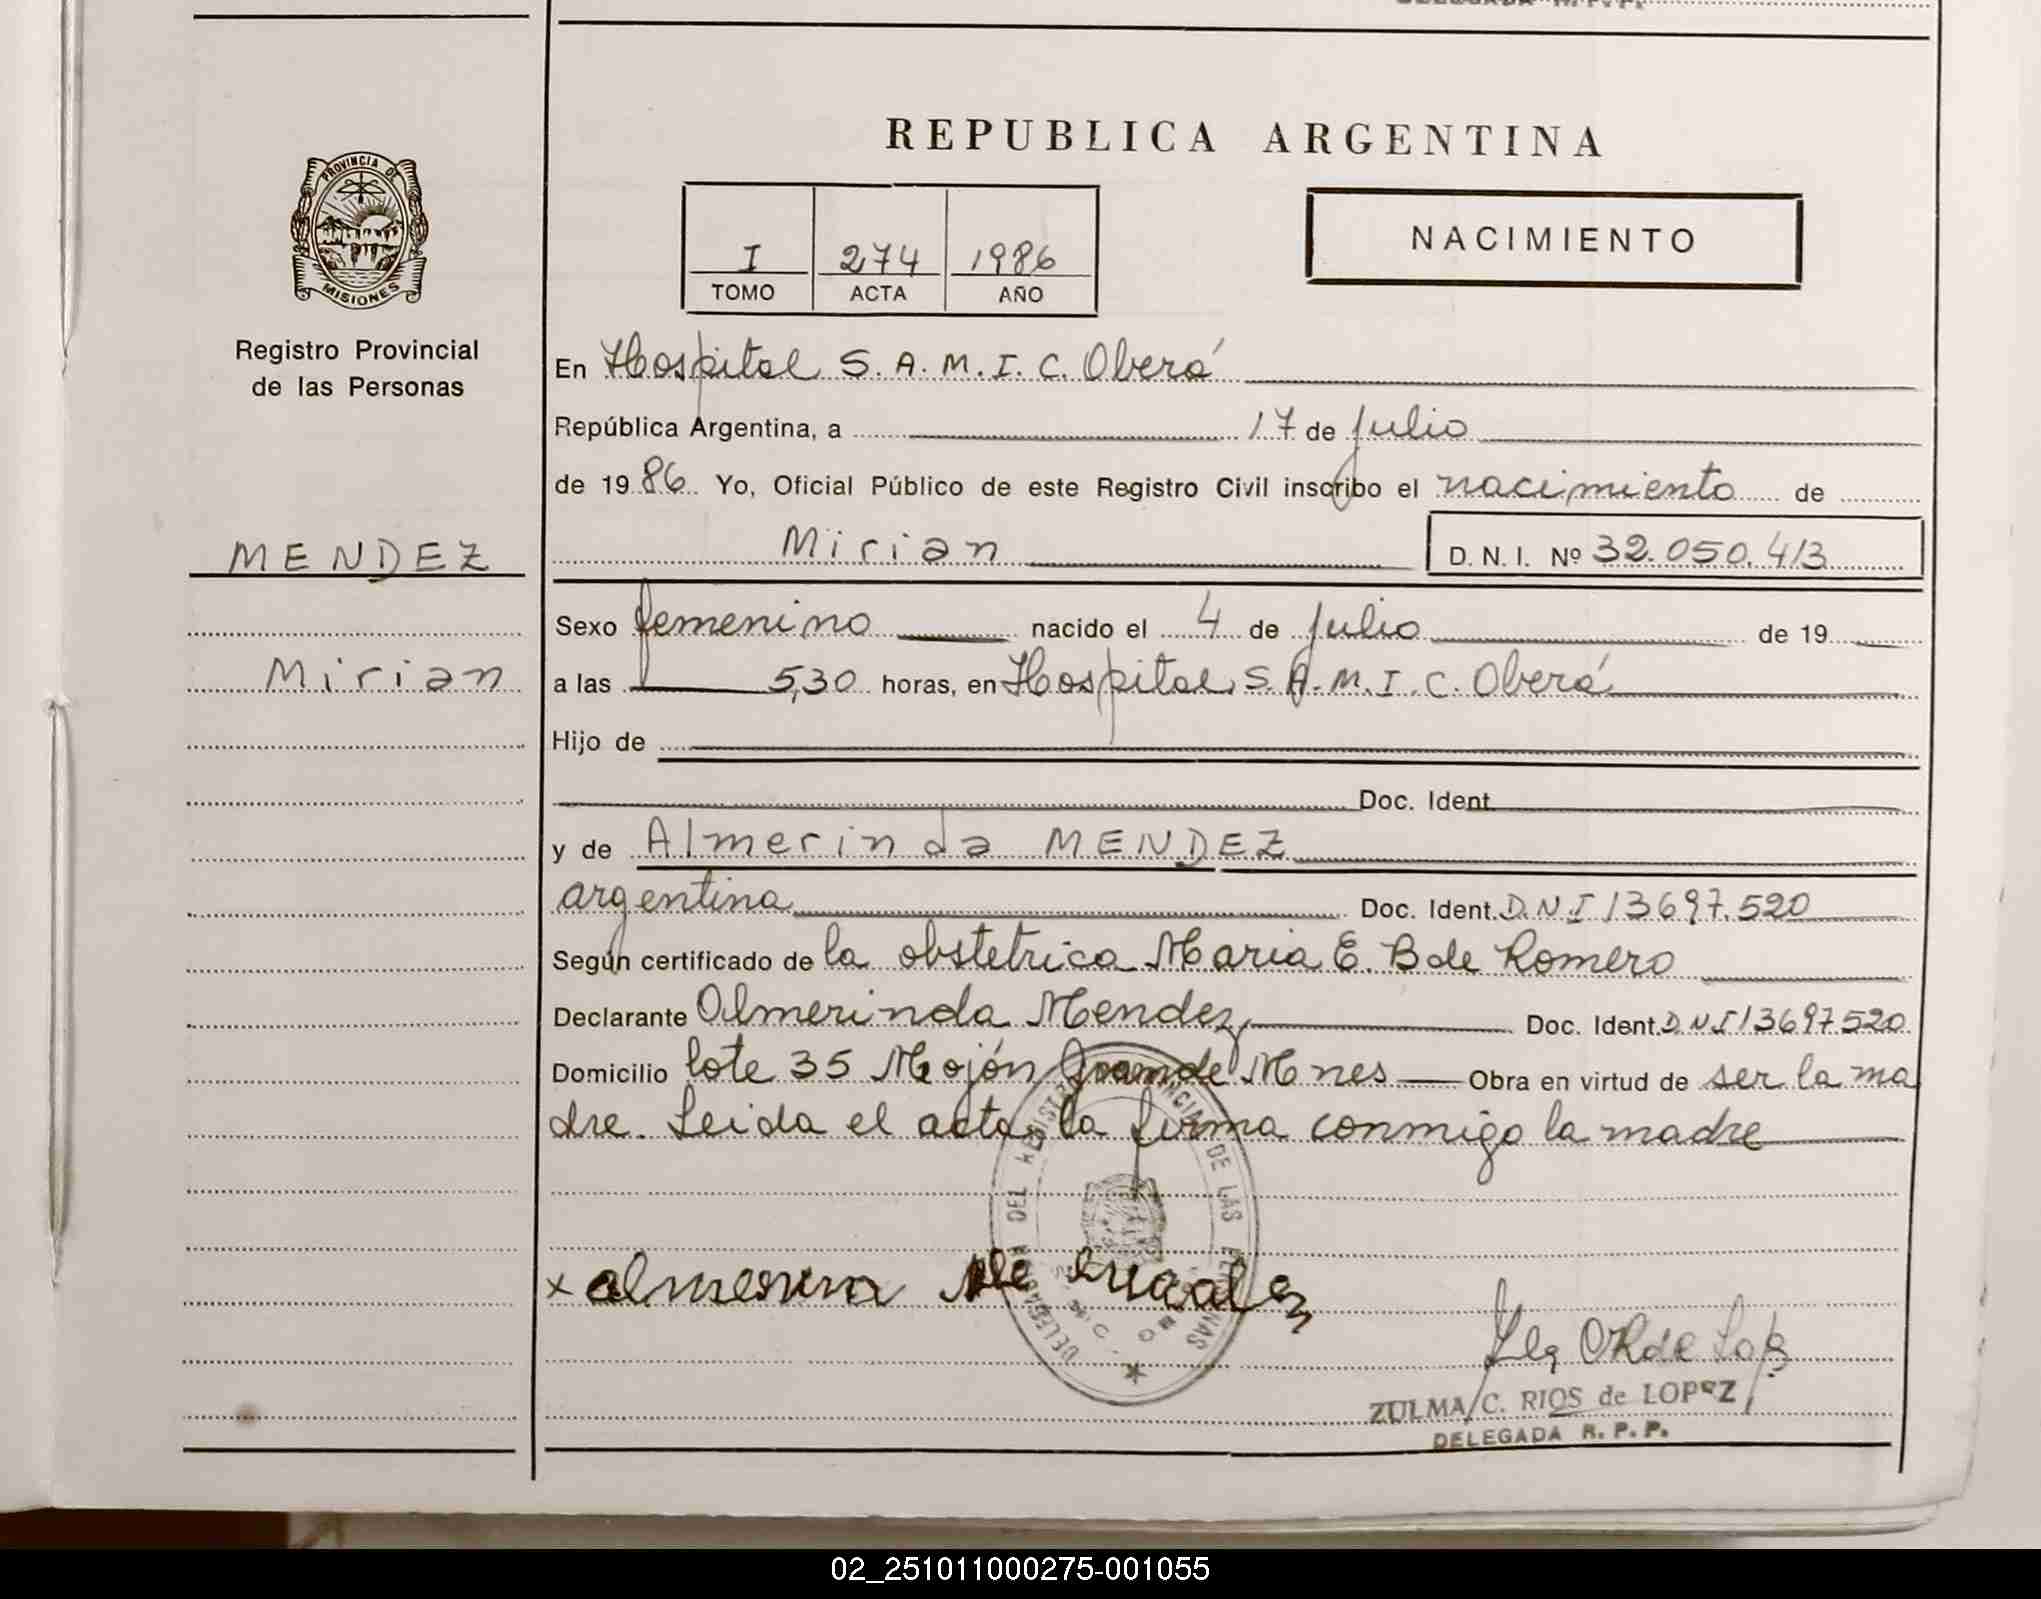 REPUBLICA ARGENTINA
PROVINCIA DE
MISIONES
Registro Provincial
de las Personas
I 274 1986
TOMO ACTA AÑO
NACIMIENTO
En Hospital S. A. M. I. C. Oberá
República Argentina, a 17 de julio
de 1986 Yo, Oficial Público de este Registro Civil inscribo el nacimiento de
MENDEZ
Mirian D. N. I. Nº 32.050.413
Sexo femenino nacido el 4 de julio de 19
Mirian
a las 5,30 horas, en Hospital S. A. M. I. C. Oberá
Hijo de
Doc. Ident.
y de Almerinda MENDEZ
argentina Doc. Ident. D.N.I 13697.520
Según certificado de la obstetrica Maria E. B de Romero
Declarante Almerinda Mendez Doc. Ident. DNI 13697520
Domicilio lote 35 Mojón Grande Mnes Obra en virtud de ser la ma
dre. Leida el acta, la firma conmigo la madre
DEL REGISTRO PROVINCIAL DE LAS PERSONAS
x
ZULMA C. RIOS de LOPEZ
DELEGADA R. P. P.
02_251011000275-001055